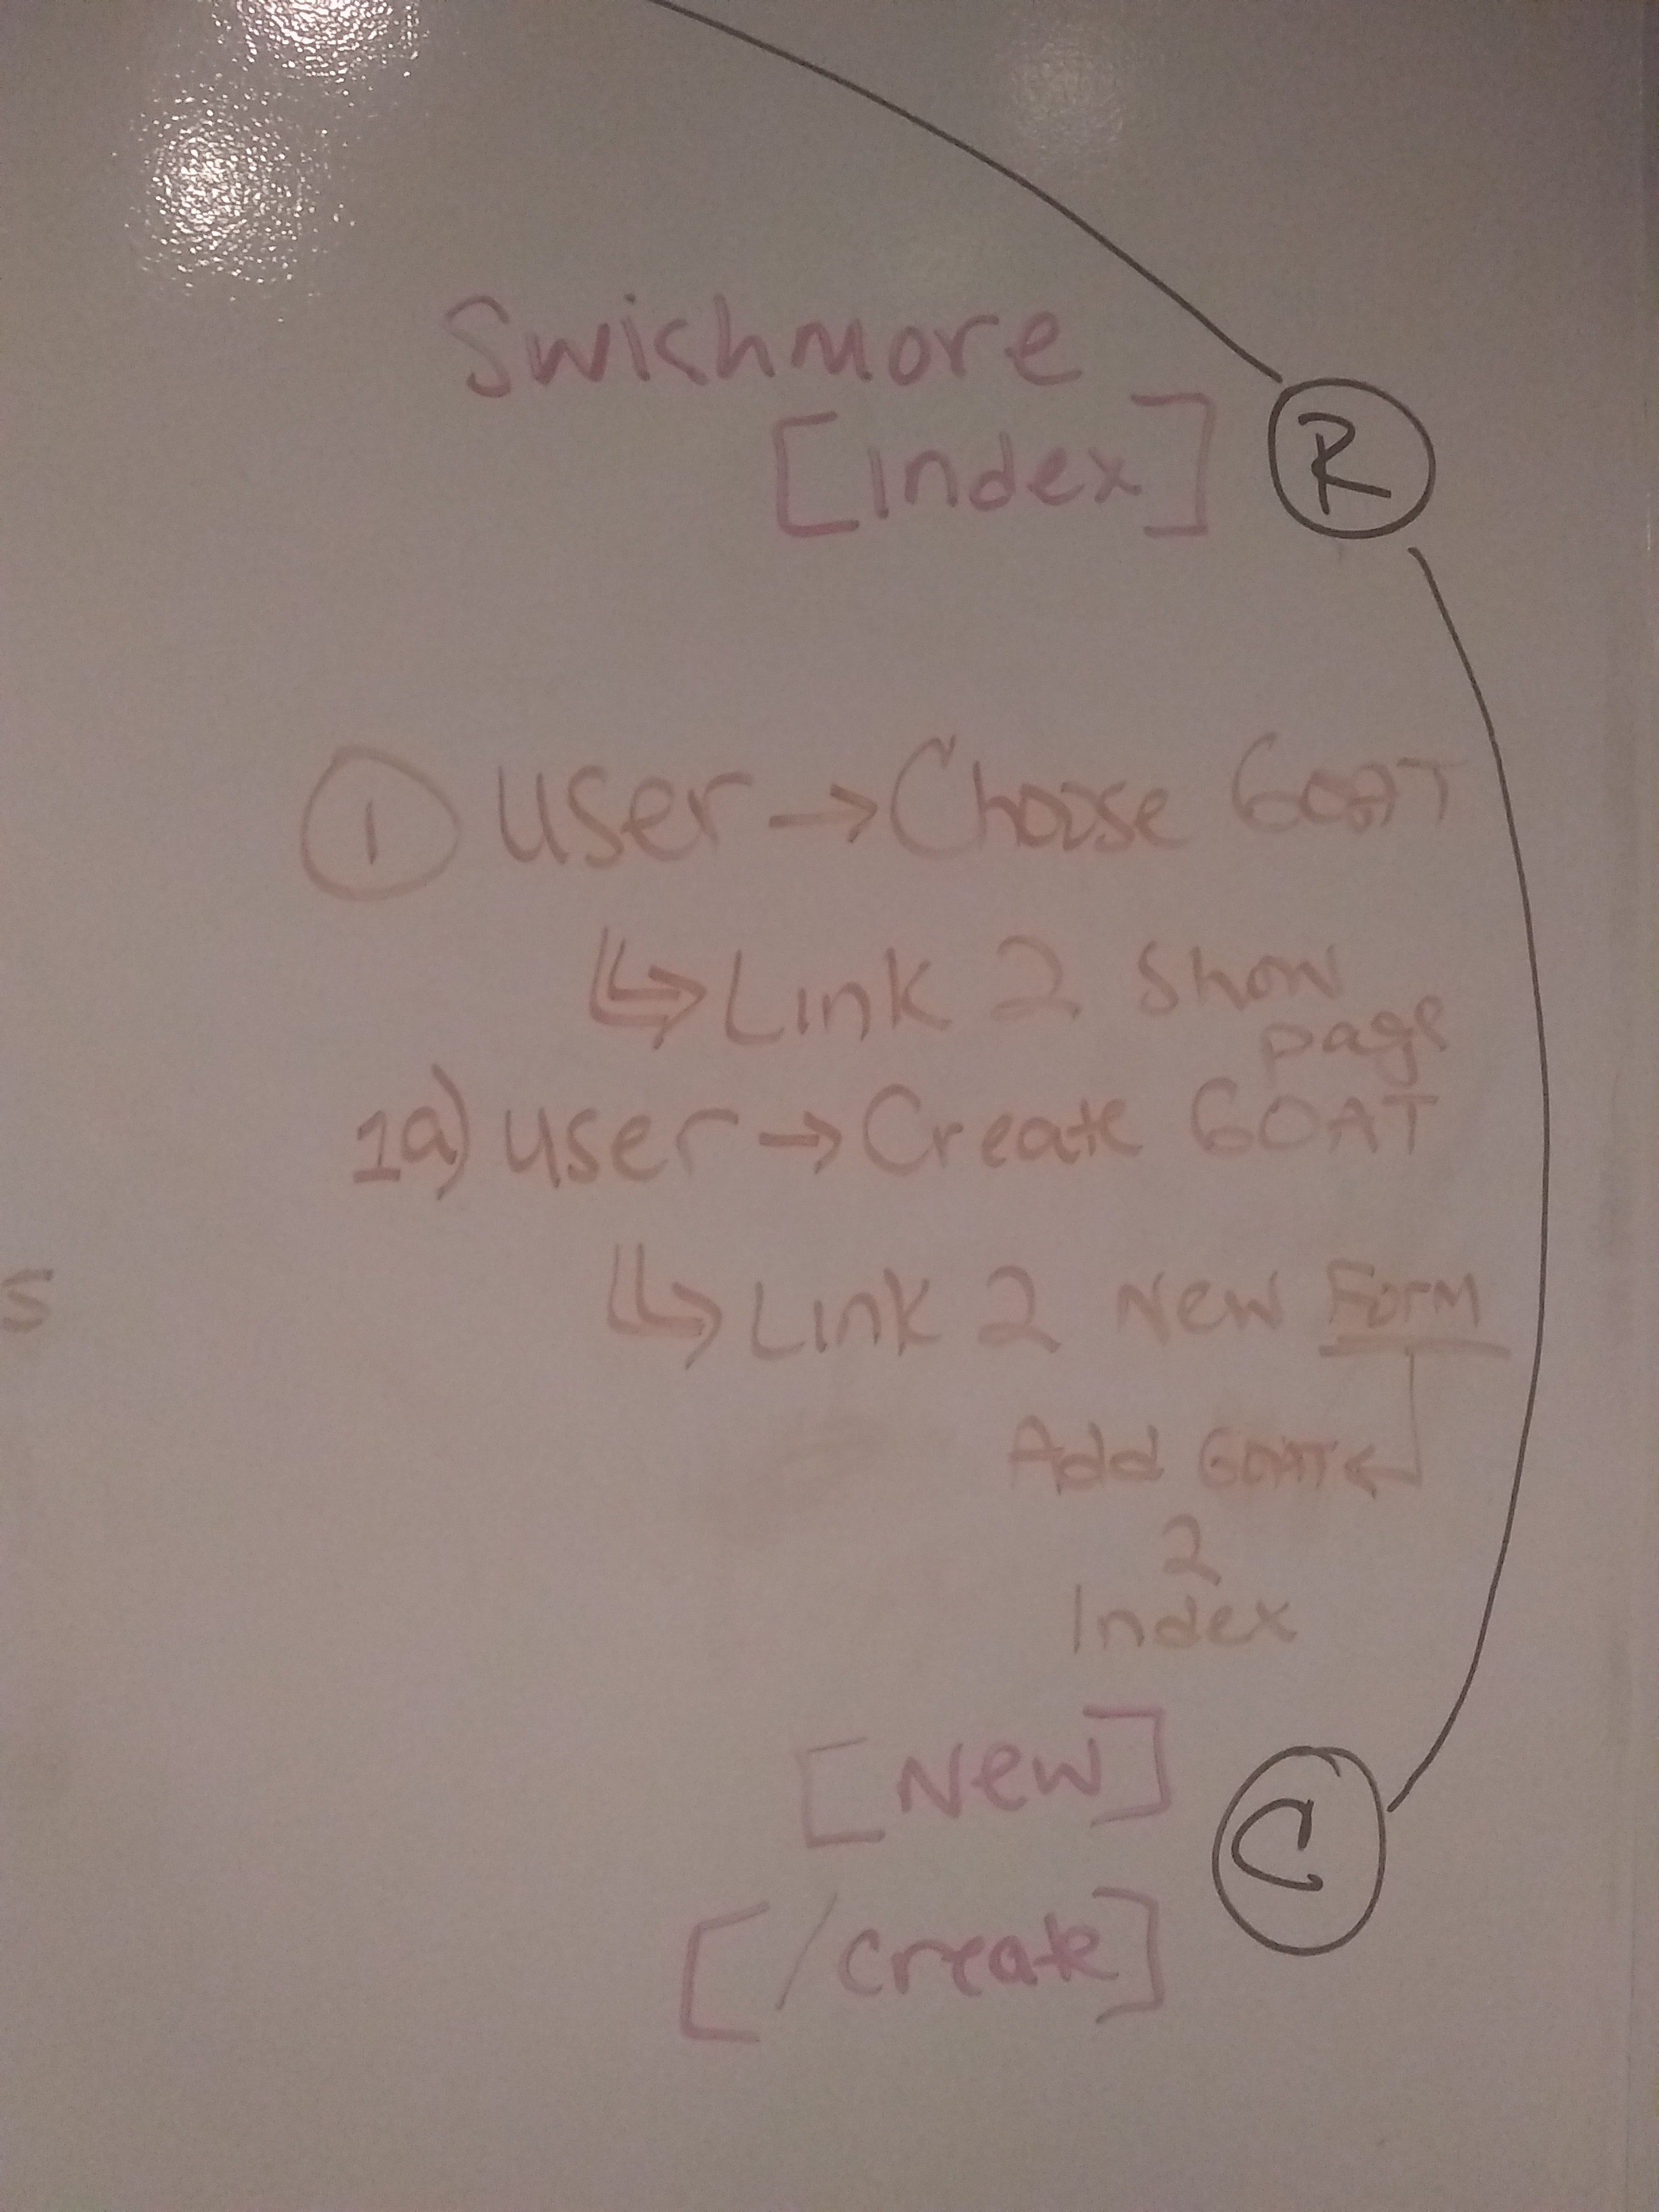 Swishmore
[Index] R
1 User → Choose GOAT
Link 2 Show
page
1a) User → Create GOAT
Link 2 New Form
S
Add GOAT
2
Index
[New]
C
[/create]